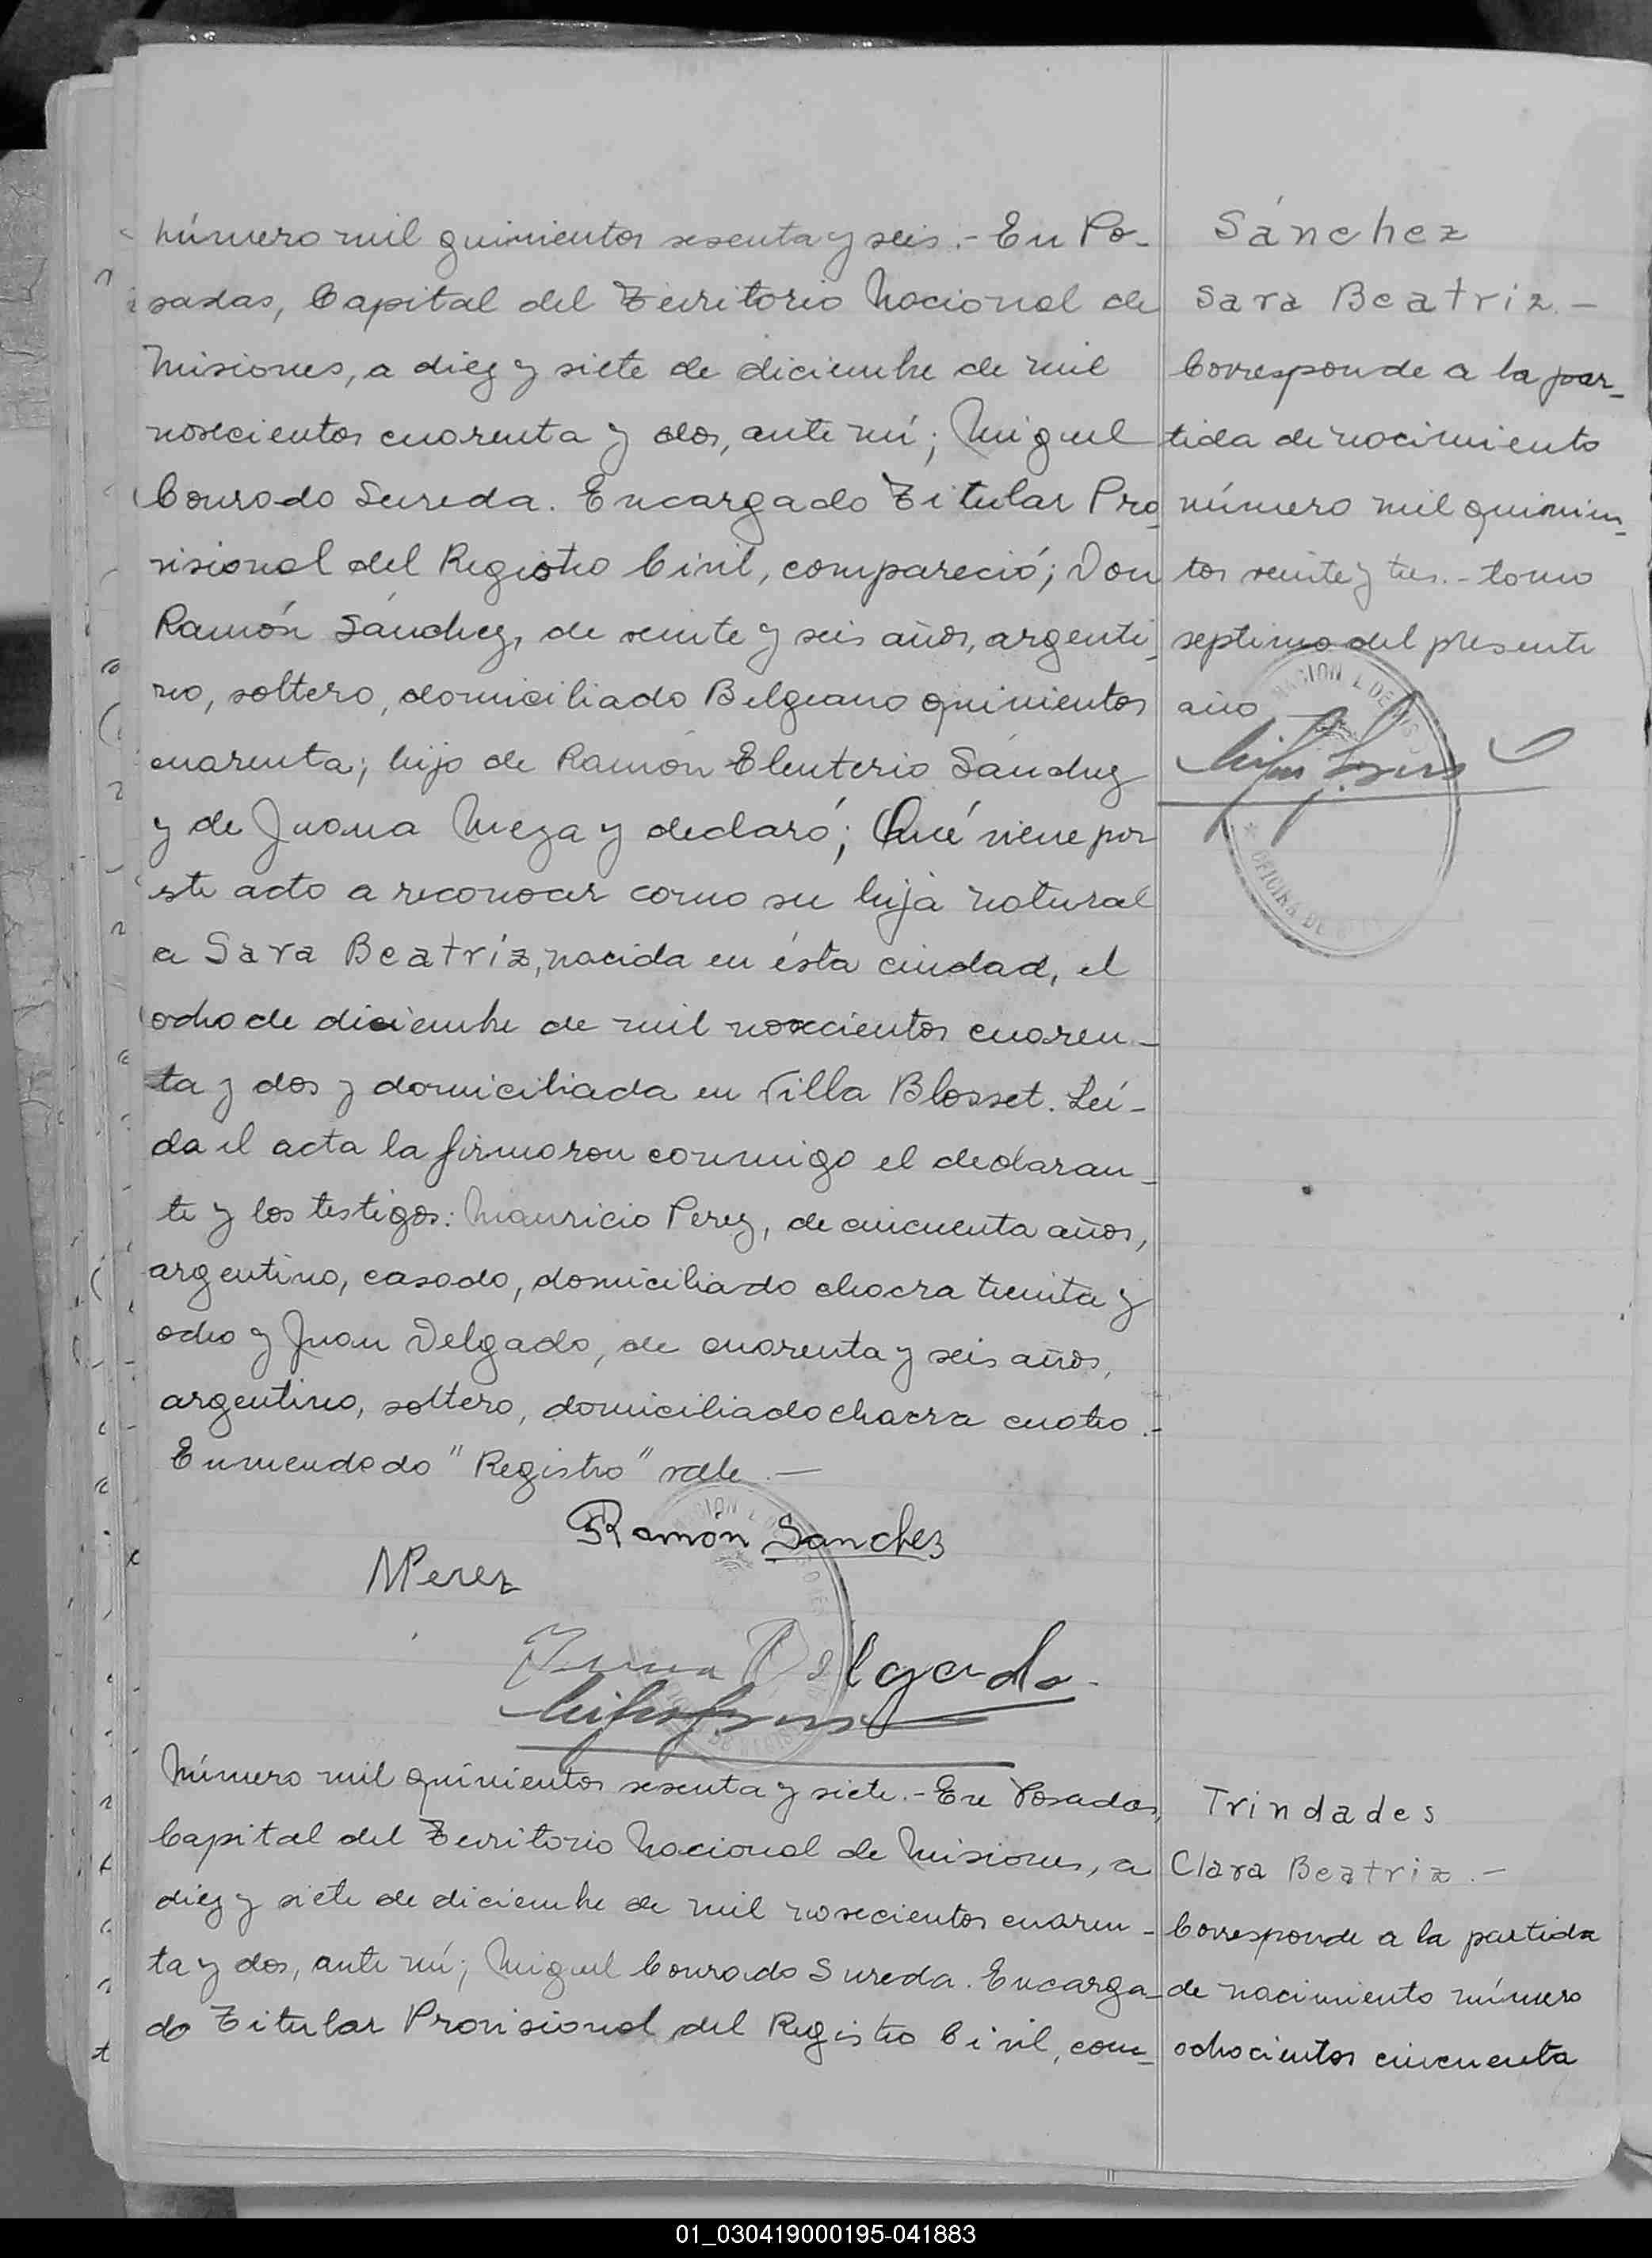 número mil quinientos sesenta y seis.- En Po-
sadas, Capital del Territorio Nacional de
Misiones, a diez y siete de diciembre de mil
novecientos cuarenta y dos, ante mí; Miguel
Conrado Sureda. Encargado Titular Pro-
visional del Registro Civil, compareció; Don
Ramón Sánchez, de veinte y seis años, argenti-
no, soltero, domiciliado Belgrano quinientos
cuarenta; hijo de Ramón Eleuterio Sánchez
y de Juana Meza y declaró; Qué viene por
este acto a reconocer como su hija natural
a Sara Beatríz, nacida en ésta ciudad, el
ocho de diciembre de mil novecientos cuaren-
ta y dos y domiciliada en Villa Blosset. Leí-
da el acta la firmaron conmigo el declaran-
te y los testigos: Mauricio Perez, de cincuenta años,
argentino, casado, domiciliado chacra treinta y
ocho y Juan Delgado, de cuarenta y seis años,
argentino, soltero, domiciliado chacra cuatro.-
Enmendado "Registro" vale.—
Ramón Sanchez
MPerez
Juan Delgado.
Sánchez
Sara Beatriz.—
Corresponde a la par-
tida de nacimiento
número mil quinien-
tos veinte y tres.- tomo
septimo del presente
año
OFICINA DE
Número mil quinientos sesenta y siete.- En Posadas,
Capital del Territorio Nacional de Misiones, a
diez y siete de diciembre de mil novecientos cuaren-
ta y dos, ante mí; Miguel Conrado Sureda. Encarga-
do Titular Provisional del Registro Civil, com-
Trindades
Clara Beatriz.—
Corresponde a la partida
de nacimiento número
ochocientos cincuenta
01_030419000195-041883